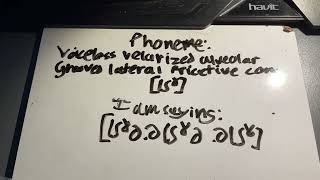 havit
Phoneme:
Voiceless velarized alveolar
Grooved lateral fricative con.
[ʪˠ]
I am saying:
[ʪˠə.əʪˠə.əʪˠ]